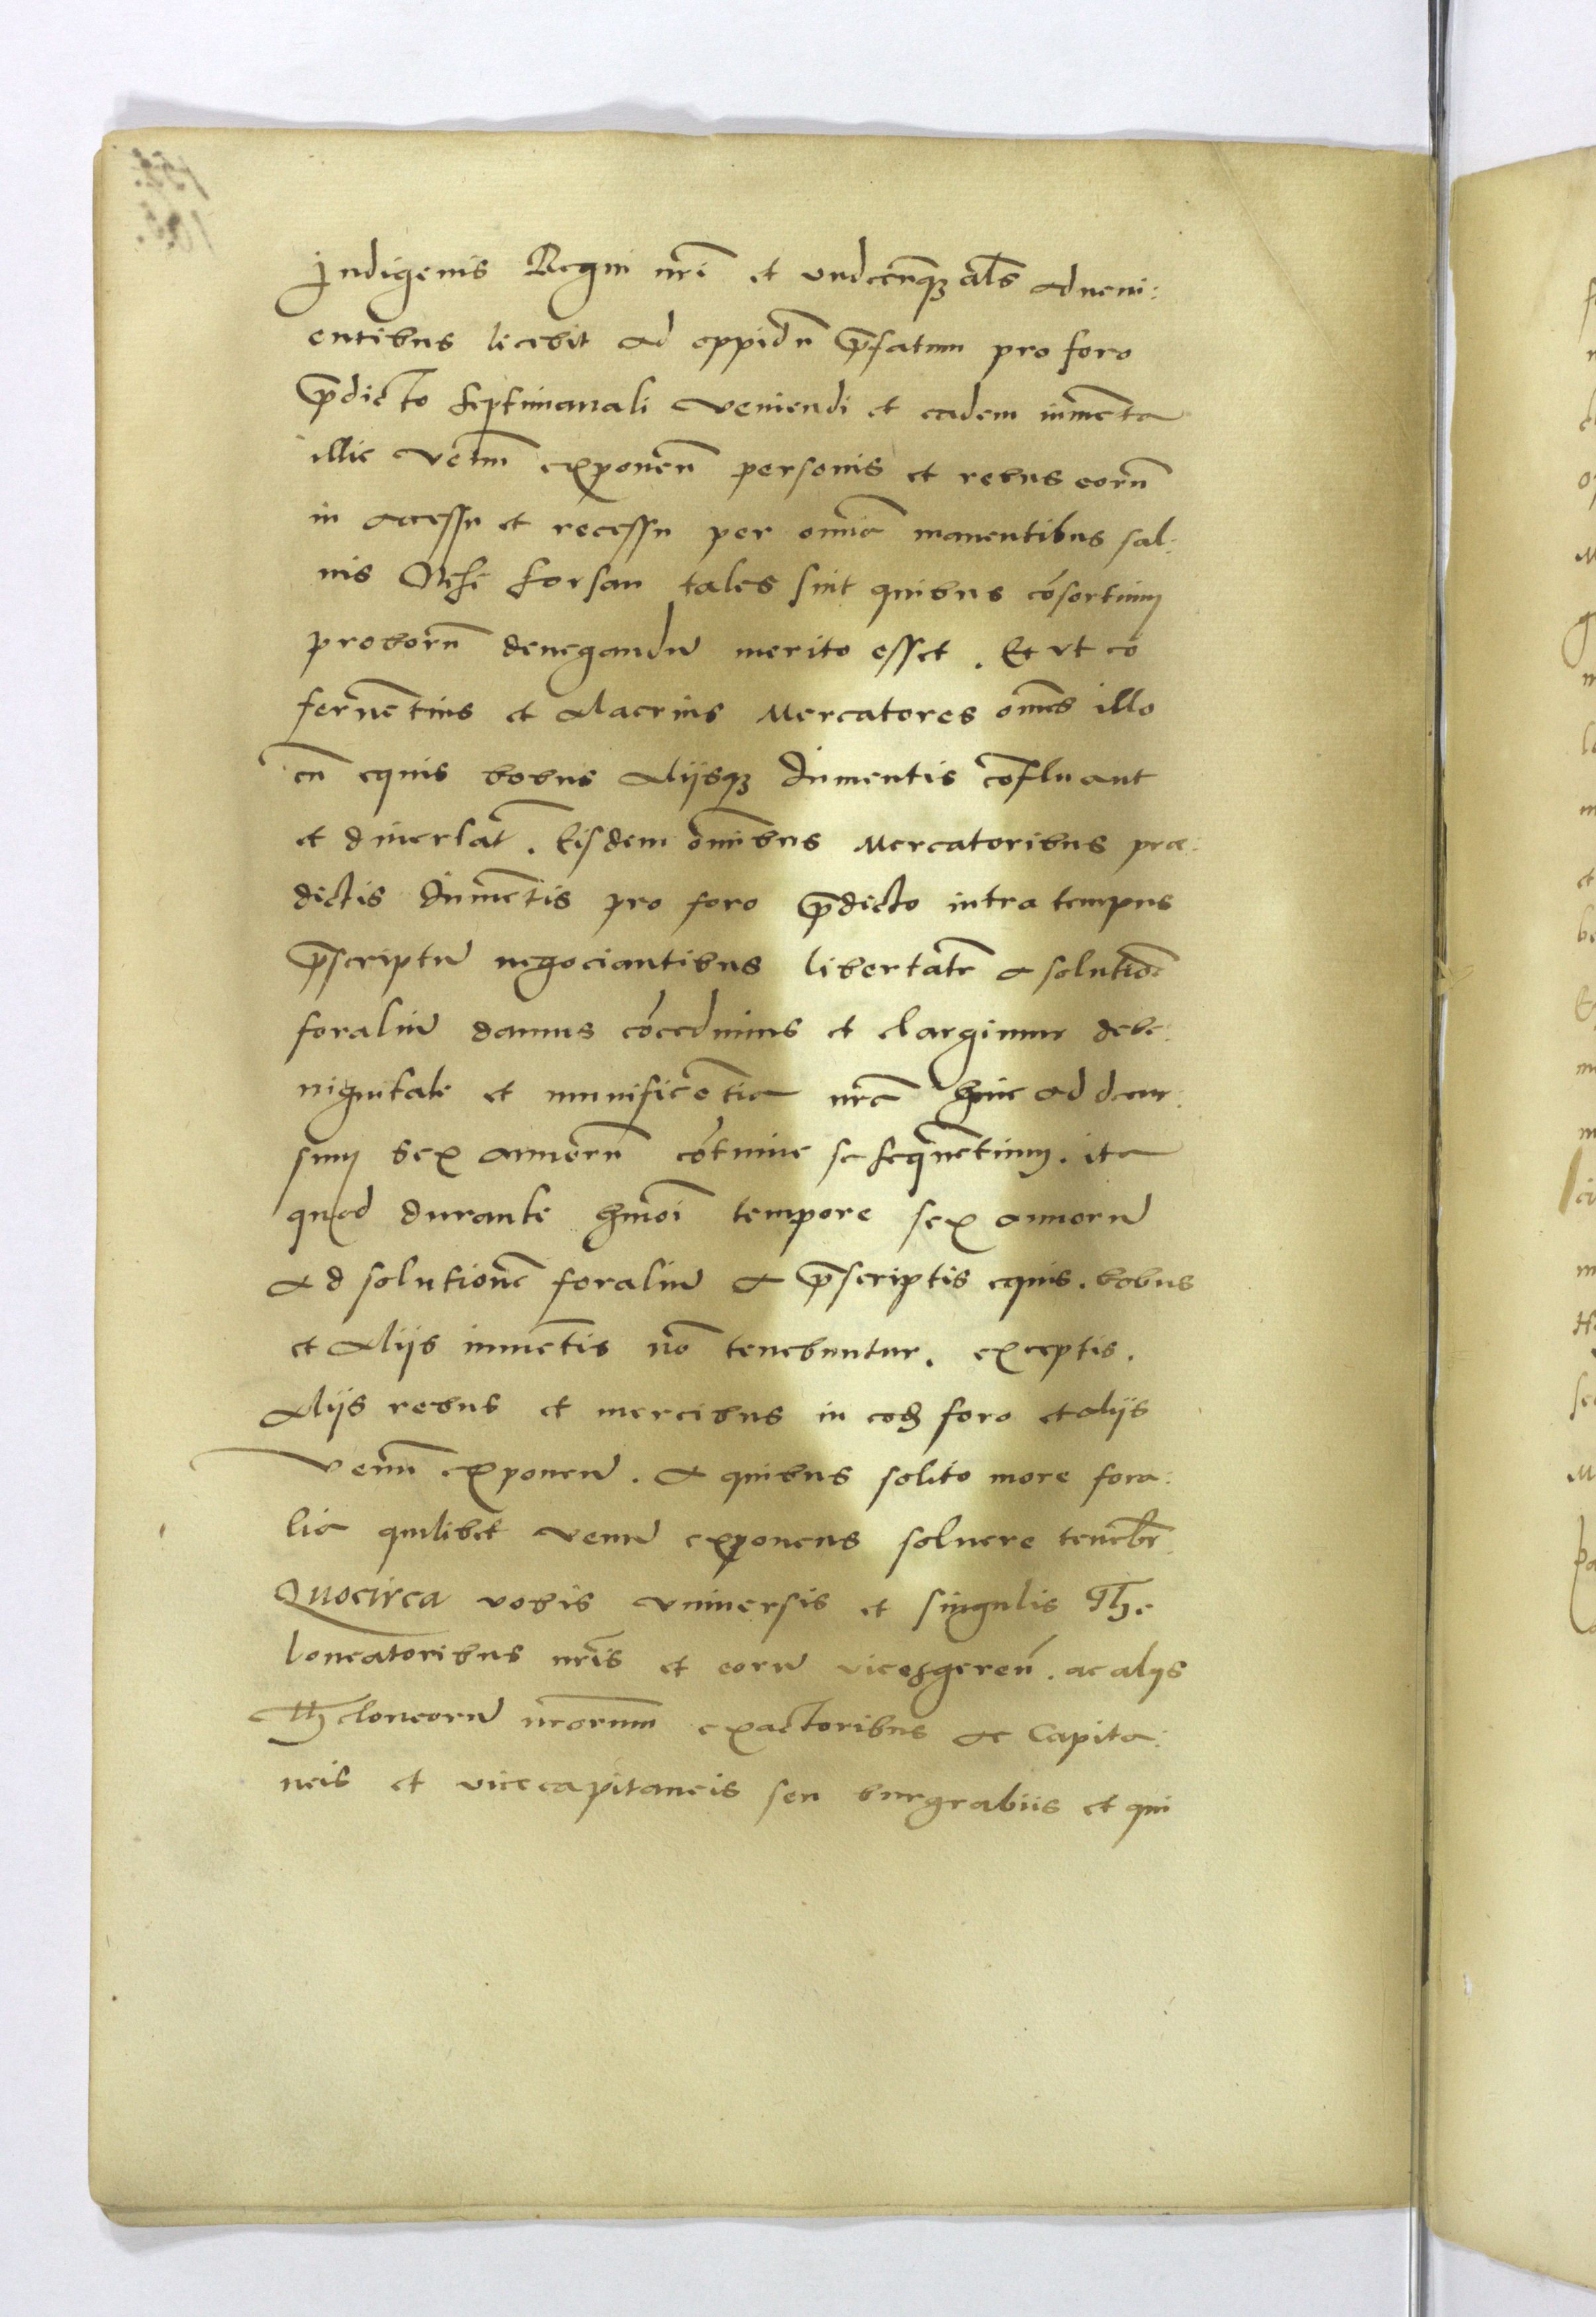 Indigenis Regni nrĩ et undecũqꝫ als̃ adueni:
entibus licebit ad oppidũ p̃fatum pro foro
p̃dicto septimanali veniendi et eadem iumẽta
illic venũ exponeñ personis et rebus eorũ
in accessu et recessu per om̃ia manentibus sal:
uis Nisi forsan tales sint quibus cõsortium
proborũ denegandũ merito esset. Et ut eo
feruẽtius et alacrius Mercatores om̃es illo
cũ equis bobus aliisqꝫ Iumentis cõfluant
et diuertãt. Eisdem om̃ibus Mercatoribus præ:
dictis Iumẽtis pro foro p̃dicto intra tempus
p̃scriptũ negociantibus libertatẽ a solutiõe
foraliũ damus cõcedimus et elargimur de be:
nignitate et munificẽtia nr̃a hinc ad decur:
sum sex annorũ cõtinue se sequẽtium. ita
quod durante hmõi tempore sex annorũ
ad solutionẽ foraliũ a p̃scriptis equis. bobus
et aliis iumẽtis nõ tenebuntur. exceptis.
aliis rebus et mercibus in eodꝫ foro et aliis
venũ exponeñ. a quibus solito more fora:
lia quilibet venũ exponens soluere tenebr̃
Quocirca vobis vniuersis et singulis The
loneatoribus nrĩs et eorũ vicesgereñ. ac aliis
Theloneorũ nr̃orum exactoribus ac Capita:
neis et vicecapitaneis seu burgrabiis et qui